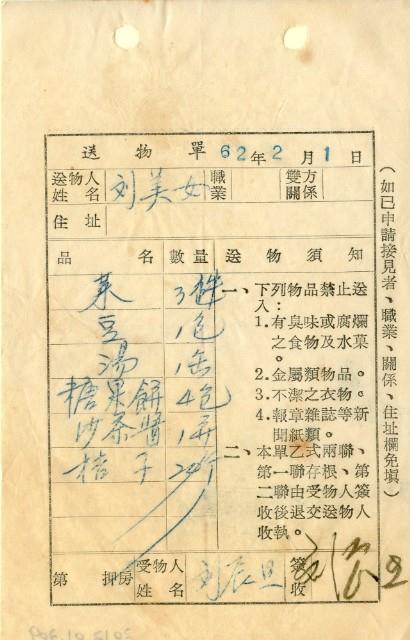 送物單 62年2月1日
送物人姓名 刘美女 職業 雙方關係
住址
品名 數量 送物須知
菜 3
豆 1包
湯 1缶
糖果餅 4包
沙茶醬 1
桔子
一、下列物品禁止送入:
1.有臭味或腐爛之食物及水菓。
2.金屬類物品。
3.不潔之衣物。
4.報章雜誌等新聞紙類。
二、本單乙式兩聯、第一聯存根、第二聯由受物人簽收後退交送物人收執。
第 押房 受物人姓名 刘辰旦 簽收
(如已申請接見者、職業、關係、住址欄免填)